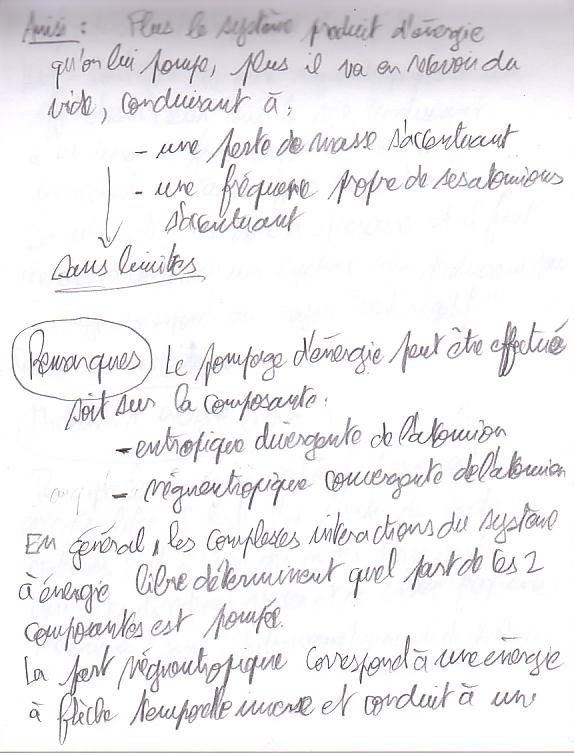 Ainsi : Plus le système produit d'énergie
qu'on lui pompe, plus il va en recevoir du
vide, conduisant à :
- une perte de masse s'accentuant
- une fréquence propre de ses atomions
s'accentuant
sans limites
Remarques Le pompage d'énergie peut être effectué
soit sur la composante :
- entropique divergente de l'atomion
- négentropique convergente de l'atomion
En général, les complexes interactions du système
à énergie libre déterminent quel part de ces 2
composantes est pompé.
La part négentropique correspond à une énergie
à flèche temporelle inverse et conduit à une